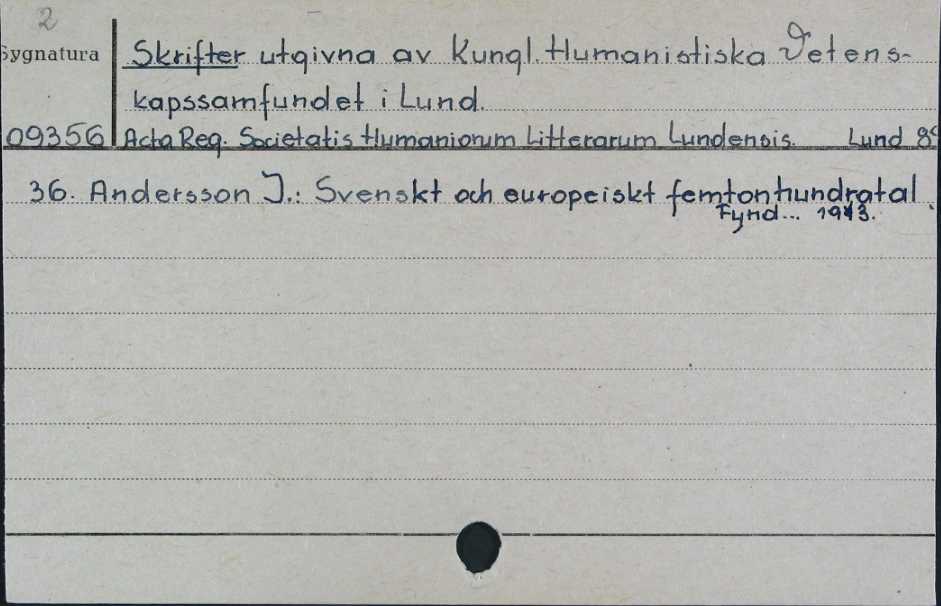 2
Sygnatura
Skrifter utgivna av Kungl. Humanistiska Vetens-
kapssamfundet i Lund.
09356 Acta Reg. Societatis Humaniorum Litterarum Lundensis. Lund 8°
36. Andersson I.: Svenskt och europeiskt femtonhundratal.
Fynd... 1943.